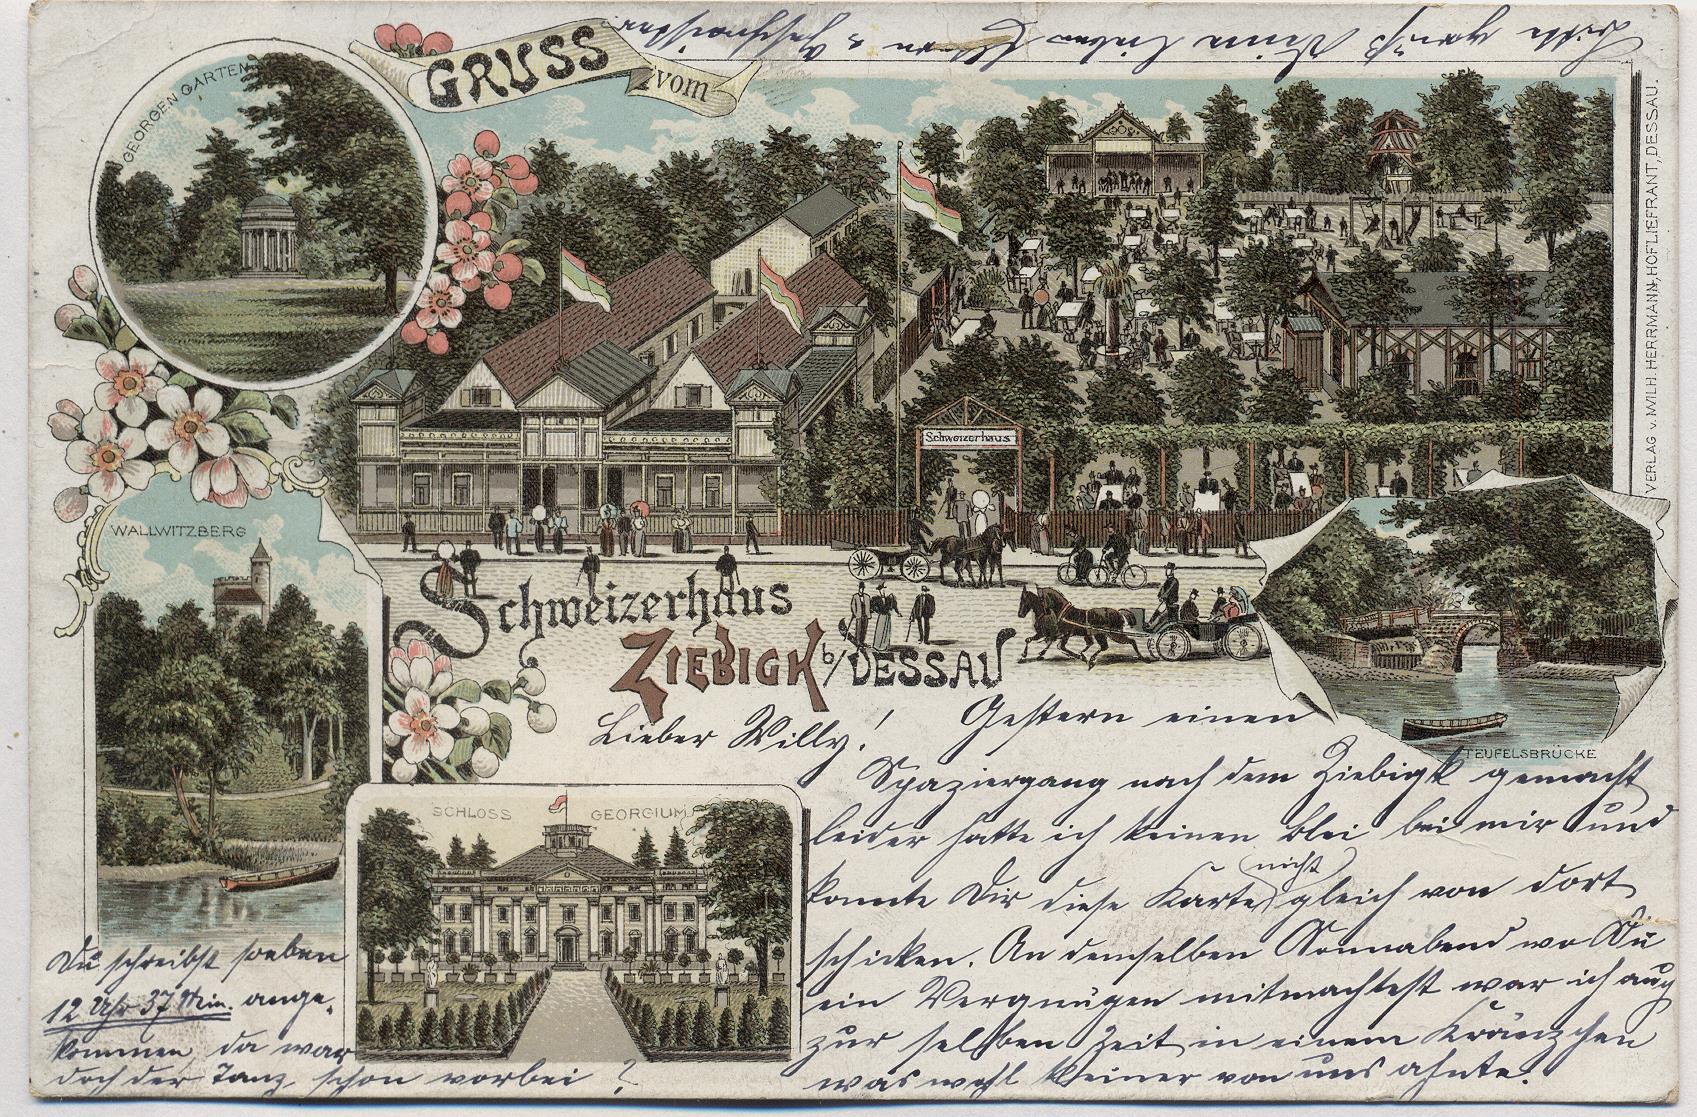 GRUSS
vom
GEORGEN GARTEN
Schweizerhaus
VERLAG v. WILH. HERRMANN, HOFLIEFRANT, DESSAU.
WALLWITZBERG
Schweizerhaus
ZIEBIGK b/DESSAU
TEUFELSBRÜCKE
SCHLOSS GEORGIUM
Lieber Willy! Gestern einen
Spaziergang nach dem Ziebigk gemacht
leider hatte ich keinen Blei bei mir und
konnte Dir diese Karte nicht gleich von dort
schicken. An demselben Sonnabend wo Du
ein Vergnügen mitmachtest war ich auch
zur selben Zeit in einem Kränzchen
was wohl keiner von uns ahnte.
Du schreibst soeben
12 Uhr 37 Min. ange-
kommen, da war
doch der Tanz schon vorbei?
Bitte grüß Deine lieben Eltern u. Geschwister